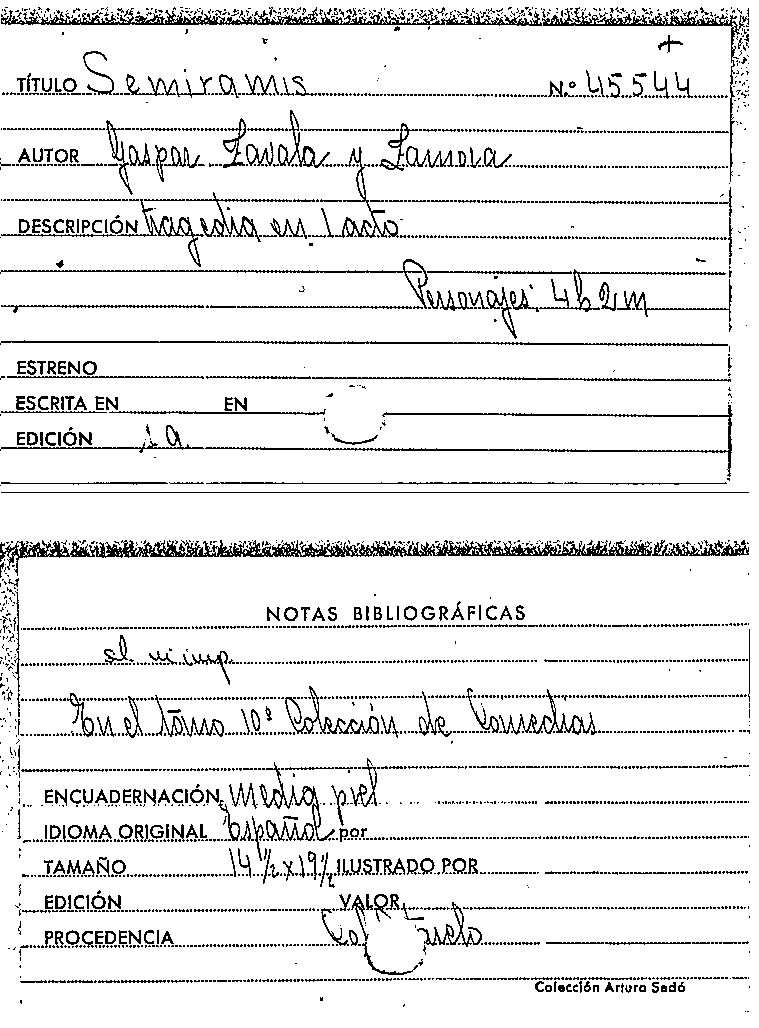 +
TÍTULO Semiramis N.º 45544
AUTOR Gaspar Zavala y Zamora
DESCRIPCIÓN tragedia en 1 acto
Personajes: 4h 2m
ESTRENO
ESCRITA EN EN
EDICIÓN 1a
NOTAS BIBLIOGRÁFICAS
En el tomo 10º Colección de Comedias
ENCUADERNACIÓN Media piel
IDIOMA ORIGINAL Español por
TAMAÑO 14 1/2 x 19 1/2 ILUSTRADO POR
EDICIÓN VALOR
PROCEDENCIA
Colección Arturo Sedó